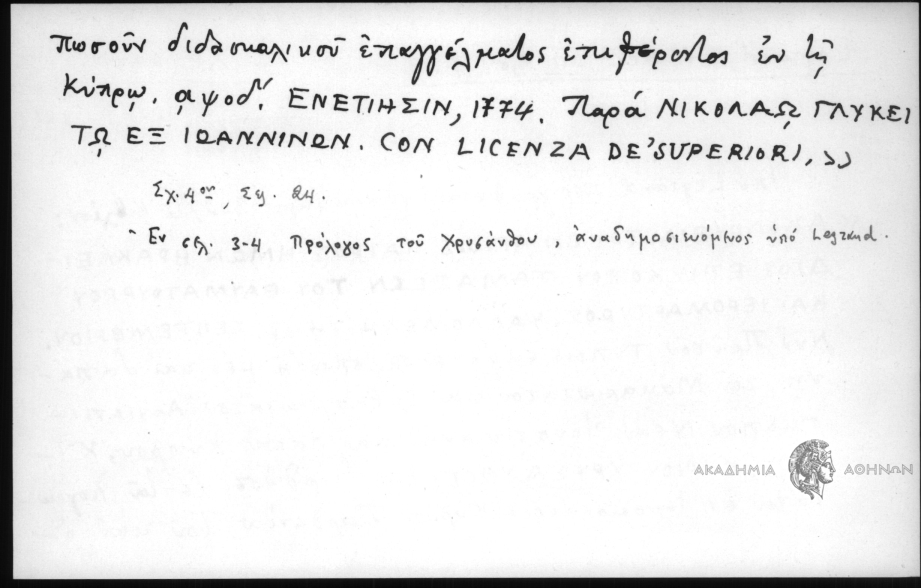 ποσοῦν διδασκαλικοῦ ἐπαγγέλματος ἐπιφέροντος ἐν τῇ
Κύπρῳ. αψοδ´. ΕΝΕΤΙΗΣΙΝ, 1774. Παρά ΝΙΚΟΛΑΩ ΓΛΥΚΕΙ
ΤΩ ΕΞ ΙΩΑΝΝΙΝΩΝ. CON LICENZA DE'SUPERIORI, »
Σχ. 4ον, Σελ. 24.
- Ἐν σελ. 3-4 Πρόλογος τοῦ Χρυσάνθου, ἀναδημοσιευόμενος ὑπό Legrand.
ΑΚΑΔΗΜΙΑ ΑΘΗΝΩΝ